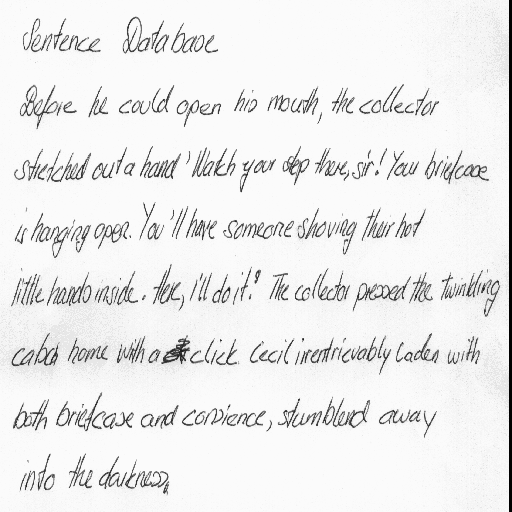 Sentence Database
Before he could open his mouth, the collector
stretched out a hand 'Watch your step there, sir! Your briefcase
is hanging open. You'll have someone shoving their hot
little hands inside. Here, I'll do it.' The collector pressed the twinkling
home with a click. Cecil irretrievably laden with
both briefcase and consience, stumblend away
into the darkness.